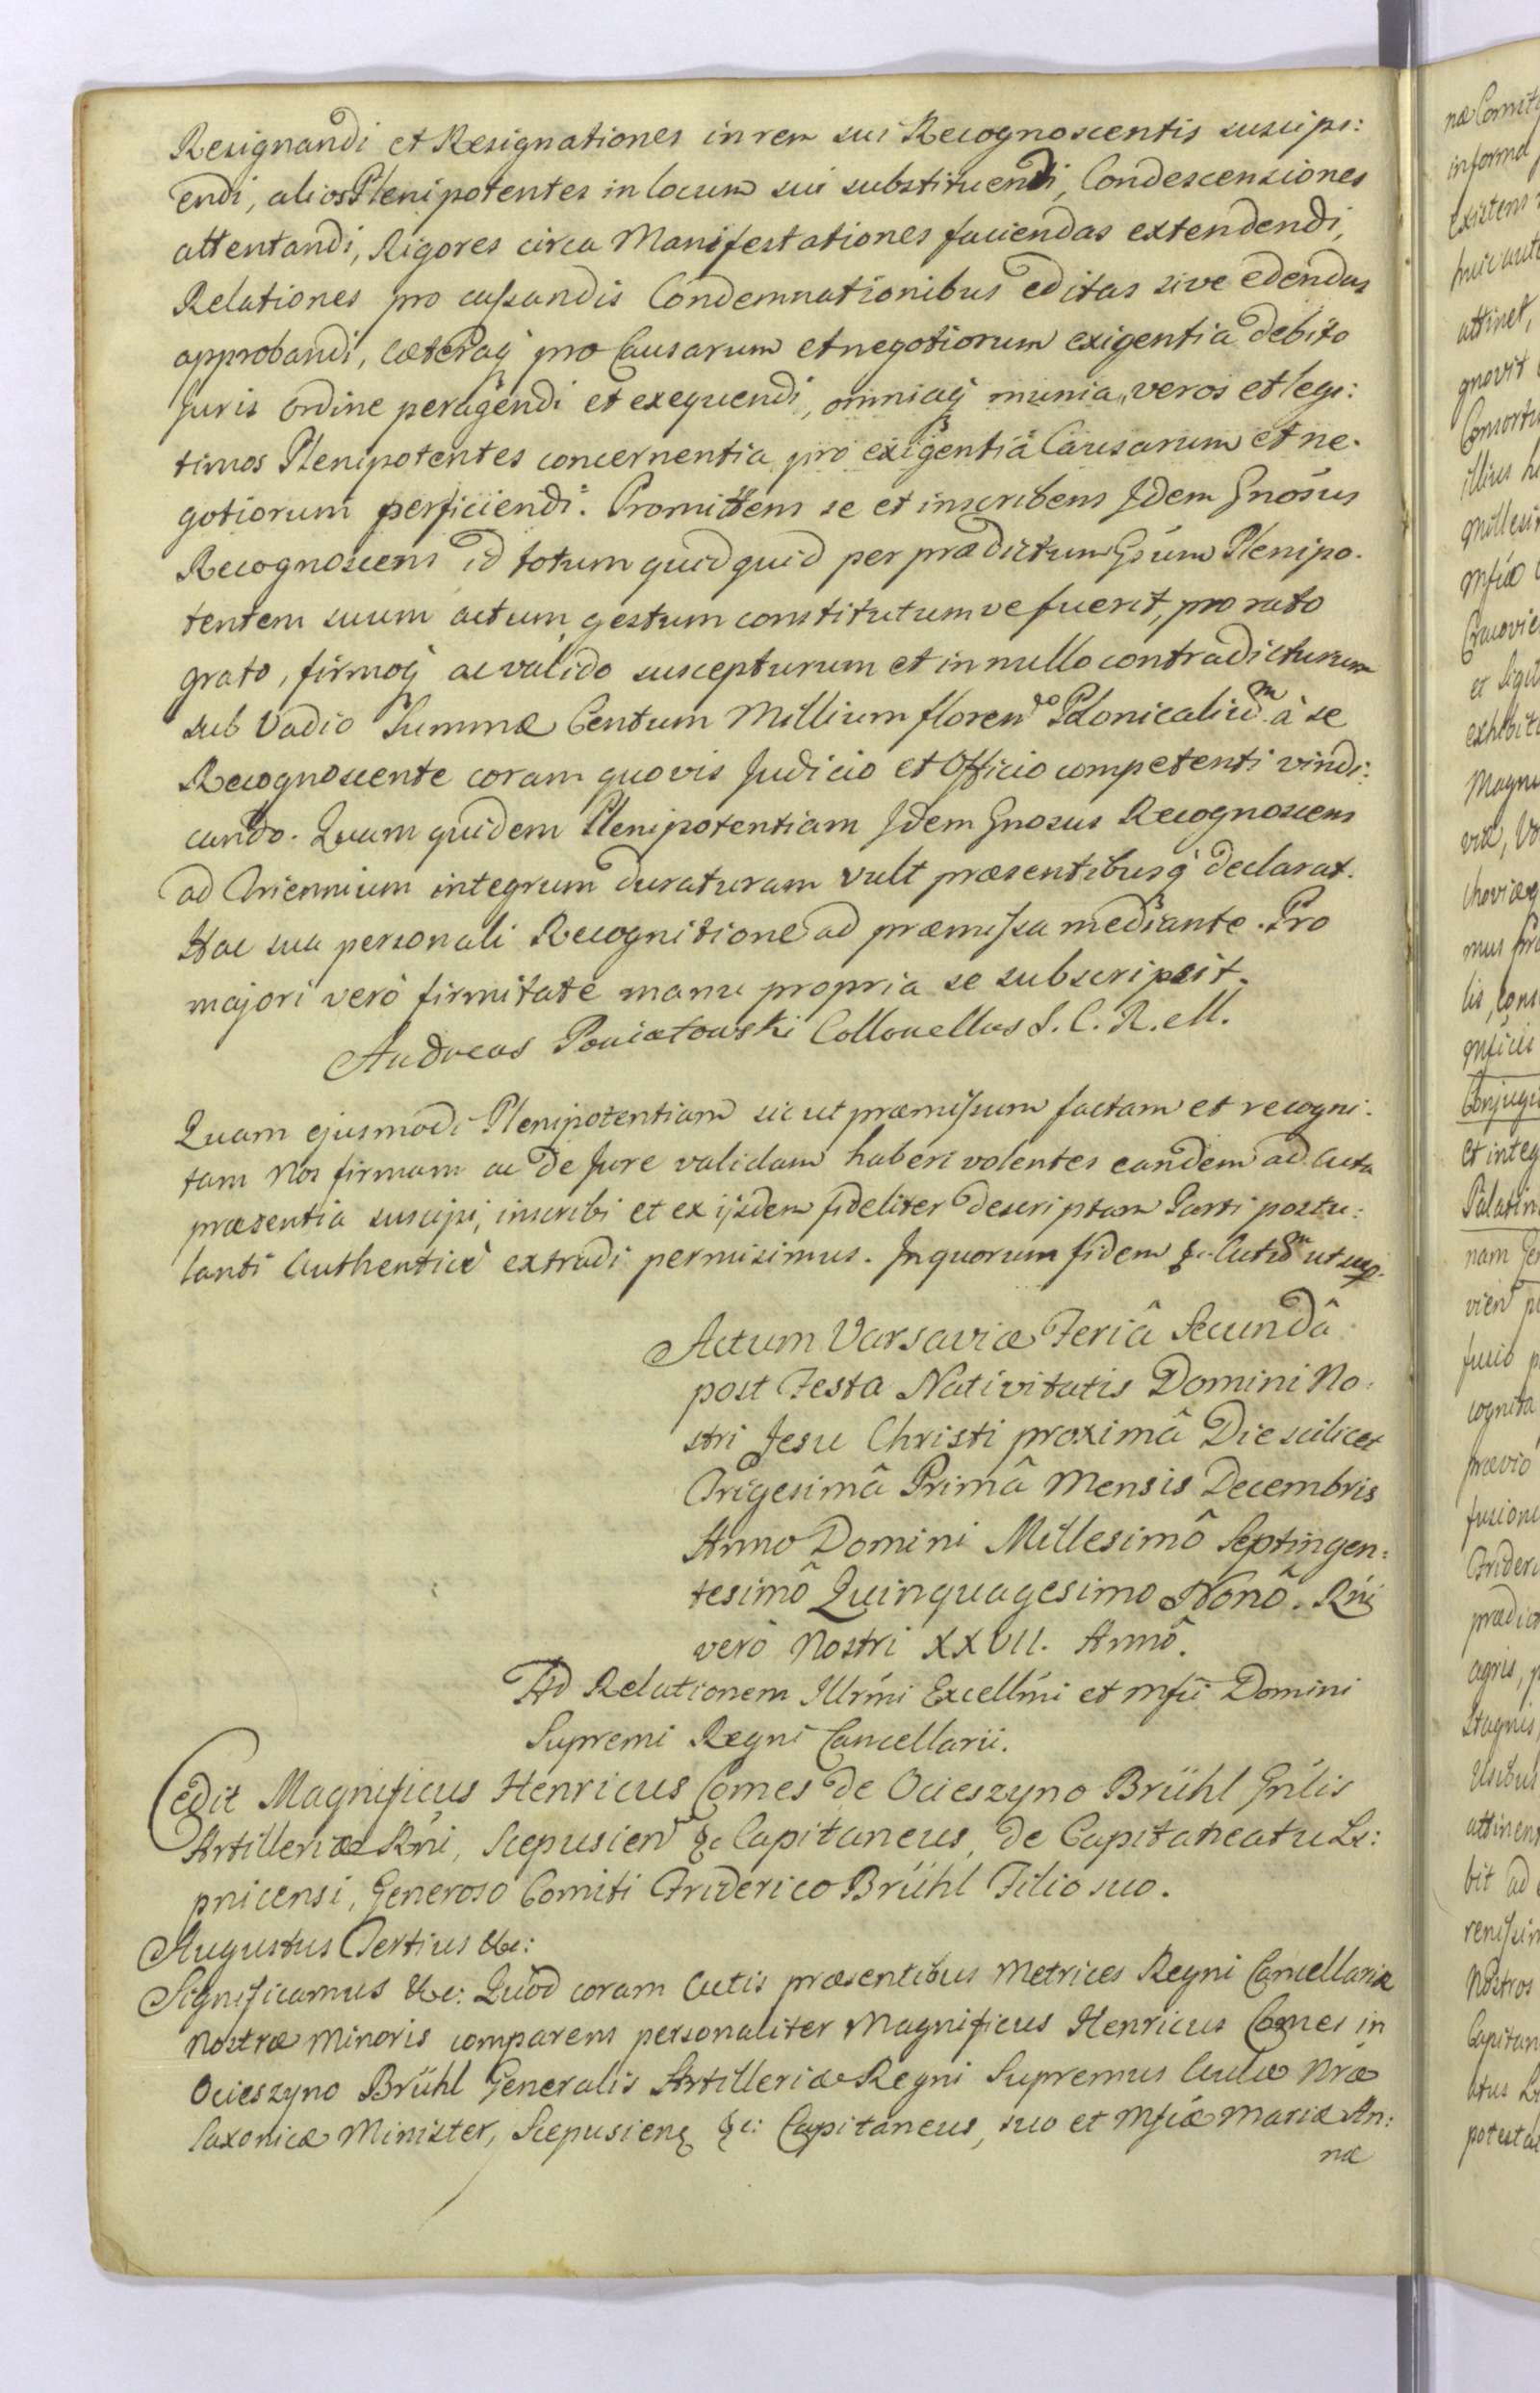 Resignandi et Resignationes in rem sui Recognoscentis suscipi:
endi, alios Plenipotentes in locum sui substituendi, Condescensiones
attentandi, Rigores circa Manifestationes faciendas extendendi,
Relationes pro cassandis Condemnationibus editas sive edendas
approbandi, cæteraq̃ pro Causarum et negotiorum exigentia debito
Juris ordine peragendi et exequendi, omniaq̃ munia, veros et legi:
timos Plenipotentes concernentia pro exigentiâ Causarum et ne-
gotiorum perficiendi. Promittens se et inscribens Idem Gnosus
Recognoscens id totum quidquid per prædictum Gsum Plenipo-
tentem suum actum, gestum constitutumve fuerit, pro rato
grato, firmoq̃ ac valido suscepturum et in nullo contradicturum
sub Vadio Summæ Centum Millium floren Polonicaliu͞m à se
Recognoscente coram quovis Judicio et Officio competenti vindi:
cando. Quam quidem Plenipotentiam Idem Gnosus Recognoscens
ad Triennium integrum duraturam vult præsentibusq̃ declarat.
Hac sua personali Recognitione ad præmissa mediante. Pro
majori verò firmitate manu propria se subscripsit.
Andreas Poniatowski Collonellus S. C. R. M.
Quam ejusmodi Plenipotentiam sic ut præmissum factam et recogni-
tam Nos firmam ac de Jure validam haberi volentes eandem ad Acta
præsentia suscipi, inscribi et ex ijsdem fideliter descriptam Parti postu:
lanti Authenticè extradi permisimus. In quorum fidem &c. Actum ut sup.
Actum Varsaviæ Feriâ Secundâ
post Festa Nativitatis Domini No-
stri Jesu Christi proximâ Die scilicet
Trigesimâ Primâ Mensis Decembris
Anno Domini Millesimô Septingen:
tesimô Quinquagesimo Nonô. Rńi
verò Nostri XXVII. Annô.
Ad Relationem Illr̃mi Excellm̃i et Mfici Domini
Supremi Regni Cancellarii.
Cedit Magnificus Henricus Comes de Ocieszyno Brühl Gńlis
Artilleriæ Rńi, Scepusien &c Capitaneus, de Capitaneatu Li:
pnicensi, Generoso Comiti Friderico Brühl Filio suo.
Augustus Tertius &c:
Significamus &c: Quod coram Actis præsentibus Metrices Regni Cancellariæ
Nostræ Minoris comparens personaliter Magnificus Henricus Comes in
Ocieszyno Brühl Generalis Artilleriæ Regni Supremus Aulæ Nræ
Saxonicæ Minister, Scepusien &c: Capitaneus, suo et Mficæ Mariæ An:
næ